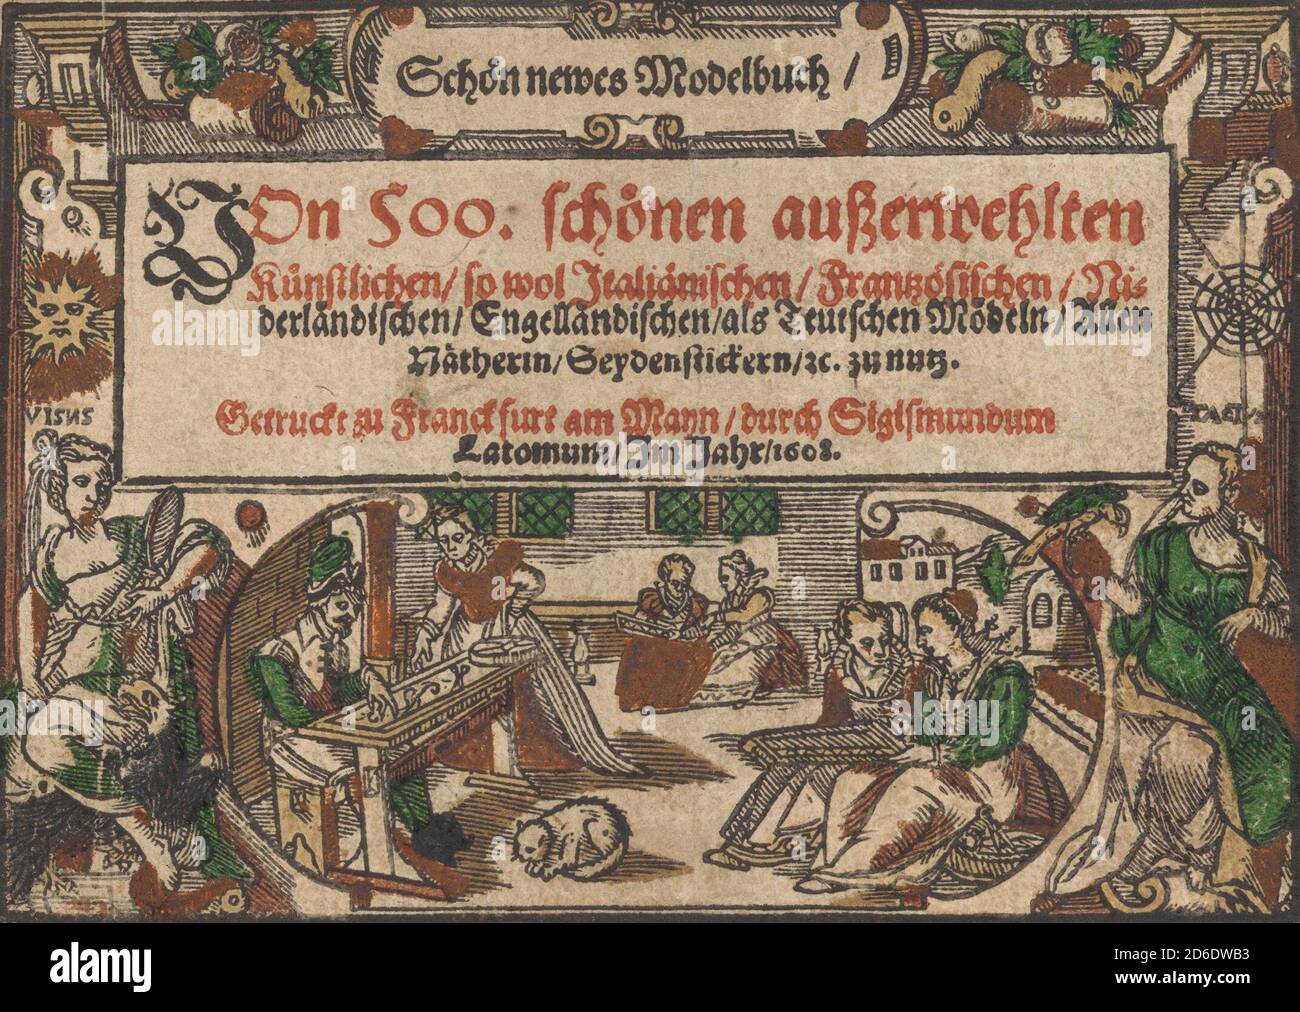 Schön newes Modelbuch /
VOn 500. schönen außerwehlten
Künstlichen / so wol Jtaliänischen / Frantzösischen / Ni-
derländischen / Engelländischen / als Teutschen Mödeln / Allen
Nätherin / Seydenstickern / ꝛc. zu nutz.
Getruckt zu Franckfurt am Mayn / durch Sigismundum
Latomum / Jm Jahr / 1608.
VISUS
TACTUS
alamy
Image ID: 2D6DWB3
www.alamy.com